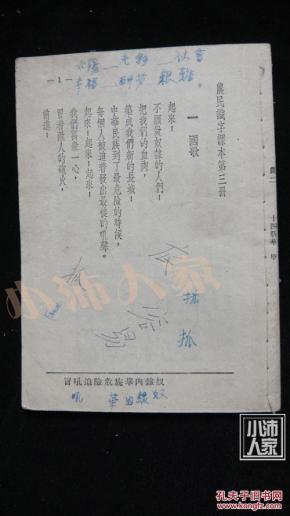 農民識字課本第三冊
一 國歌
起來!
不願做奴隸的人們!
把我們的血肉,
築成我們新的長城!
中華民族到了最危險的時候,
每個人被迫着發出最後的吼聲。
起來!起來!起來!
我們萬衆一心,
冒着敵人的砲火,
前進!
— 1 —
社會
奴隸肉華族險迫吼冒
奴 華 吼
抓
小沛人家
小沛人家
孔夫子旧书网